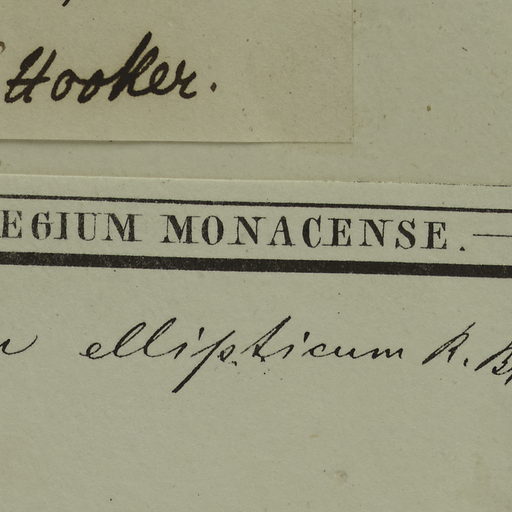 Hooker.
EGIUM MONACENSE.
ellipticum R. Br